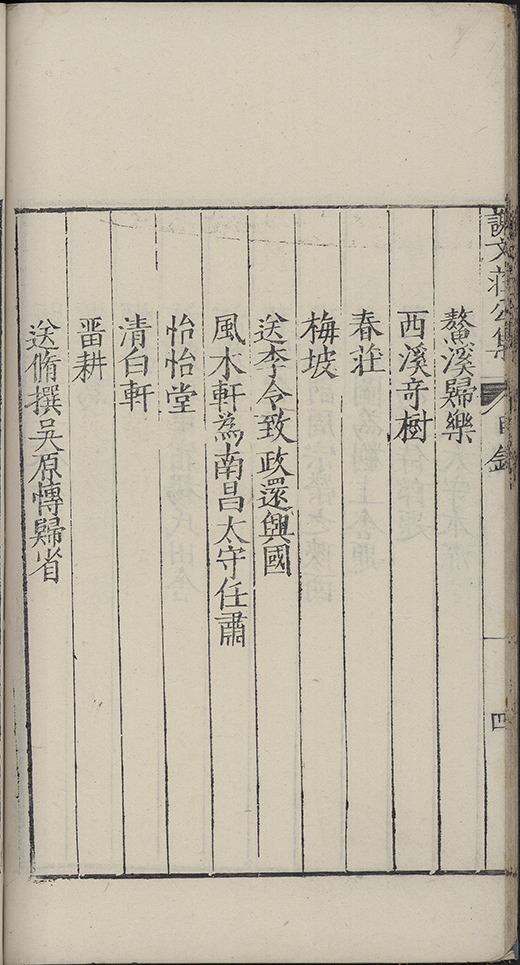 謝文莊公集 目錄
四
鰲溪歸樂
西溪奇樹
春莊
梅坡
送李令致政還興國
風木軒為南昌太守任肅
怡怡堂
清白軒
畱耕
送脩撰吳原慱歸省